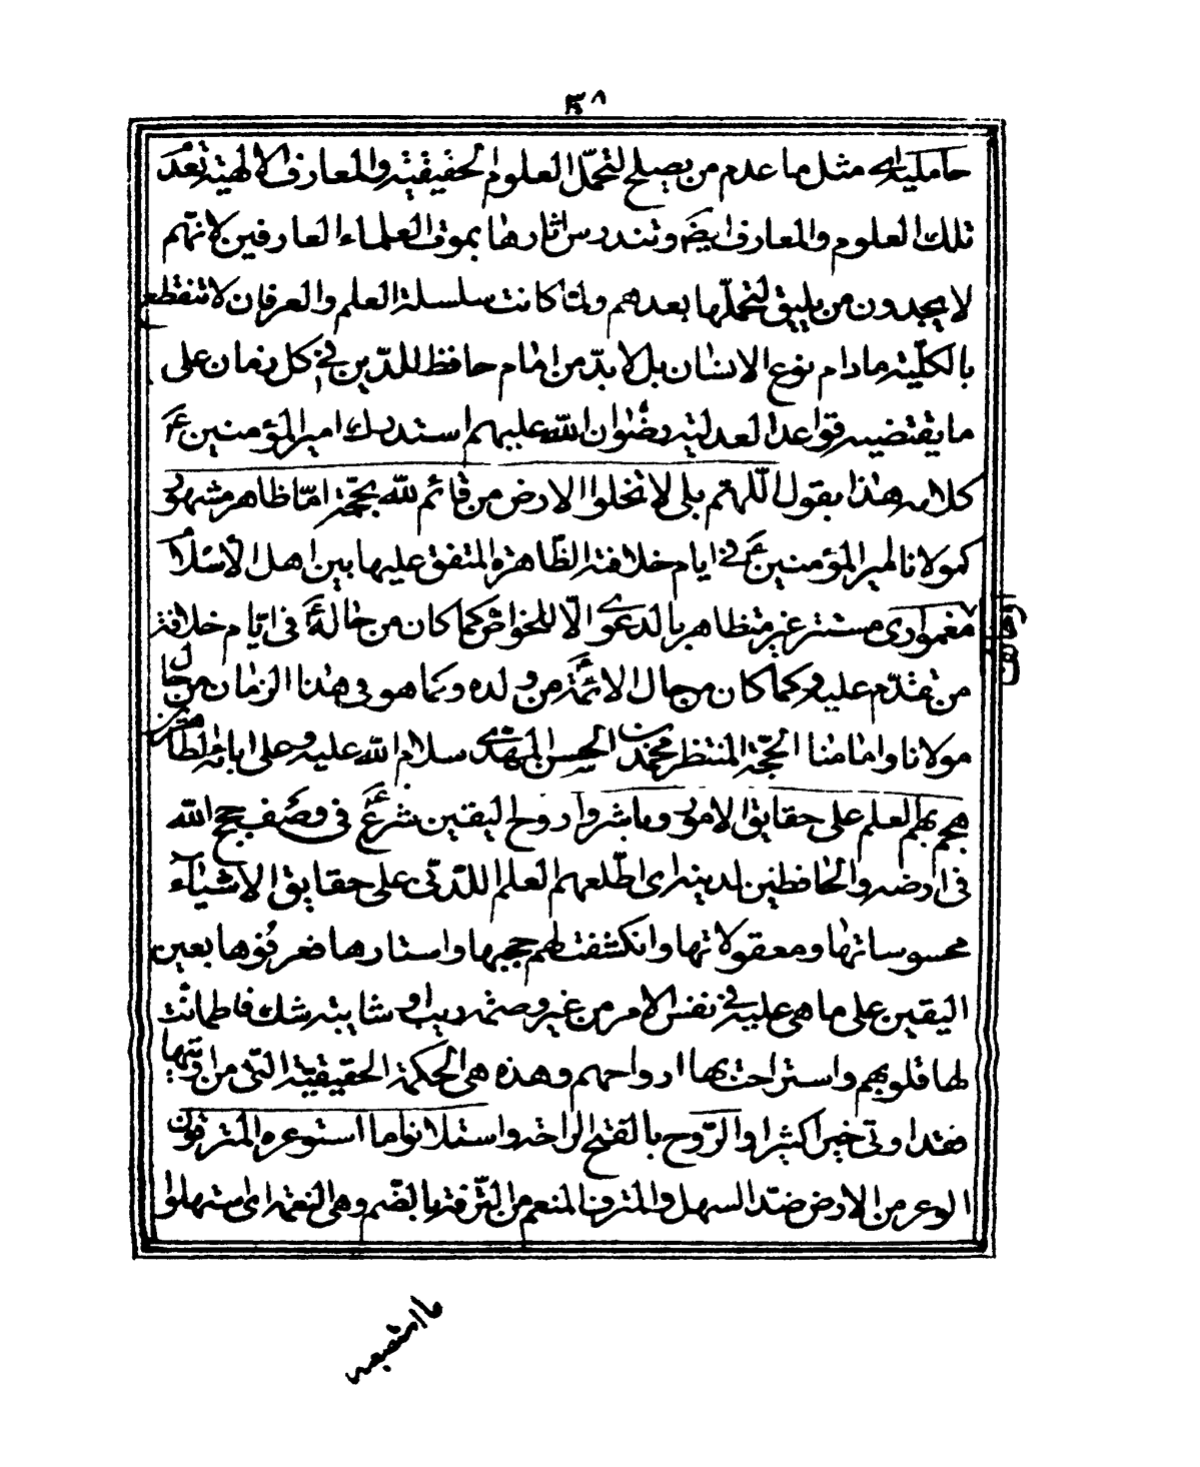 ٣٨
حامليه اى مثل ما عدم من يصلح لتحمّل العلوم الحقيقية والمعارف الالهية تعدم
تلك العلوم والمعارف ايضا وتندرس اثارها بموت العلماء العارفين لانّهم
لا يجدون من يليق لتحمّلها بعدهم ولمّا كانت سلسلة العلم والعرفان لا تنقطع
بالكلّية مادام نوع الانسان بل لابدّ من امام حافظ للدّين فى كل زمان على
ما يقتضيه قواعد العدلية رضوان الله عليهم استدرك امير المؤمنين ع
كلامه هذا بقوله اللّهم بلى لا تخلوا الارض من قائم لله بحجّة امّا ظاهر مشهور
كمولانا امير المؤمنين ع فى ايام خلافته الظّاهرة المتفق عليها بين اهل الاسلام
مغمور اى مستتر غير متظاهر بالدعوى الّا للخواصّ كما كان من حاله ع فى ايّام خلافة
من تقدّم عليه وكما كان من حال الائمّة من ولده وكما هو فى هذا الزمان من حال
مولانا وامامنا الحجّة المنتظر محمد بن الحسن المهدى سلام الله عليه وعلى ابائه الطاهرين
هجم بهم العلم على حقايق الامور وباشروا روح اليقين شرع ع فى وصف حجج الله
فى ارضه والحافظين لدينه اى اطّلعهم العلم اللدّنى على حقايق الاشياء
محسوساتها ومعقولاتها وانكشفت لهم حجبها واستارها فعرفوها بعين
اليقين على ما هى عليه فى نفس الامر من غير وصمة ريب او شايبة شك فاطمانّت
لها قلوبهم واستراحت بها ارواحهم وهذه هى الحكمة الحقيقيّة التى من اوتيها
فقد اوتى خيرا كثيرا والرّوح بالفتح الراحة واستلانوا ما استوعره المترفون
الوعر من الارض ضدّ السهل والمترف المنعم من التّرفة بالضّم وهى النعمة اى استهلوا
ما استصعبه